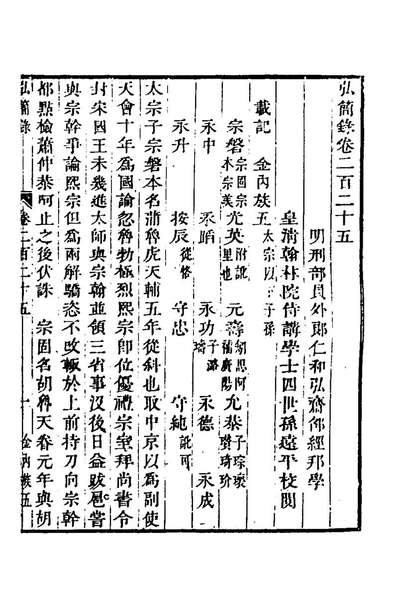 弘簡錄卷二百二十五
明刑部員外郎仁和弘齋邵經邦學
皇清翰林院侍講學士四世孫遠平校閱
載記 金內族五 太宗以下子孫
宗磐 宗固 宗美 宗英附 允英 里也 元壽 允恭 子琮 瓌 瓚 琦 玠
永中 永蹈 永功 子璐 璹 永德 永成
永升 按辰 從恪 守忠 守純 訛可
太宗子宗磐本名蒲魯虎天輔五年從斜也取中京以為副使
天會十年為國論忽魯勃極烈熙宗即位優禮宗室拜尚書令
封宋國王未幾進太師與宗幹並領三省事沒後日益跋扈嘗
與宗幹爭論熙宗但為兩解驕恣不改輒於上前持刀向宗幹
都點檢蕭仲恭呵止之後伏誅 宗固名胡魯天眷元年與胡
弘簡錄 卷二百二十五 一 金內族五